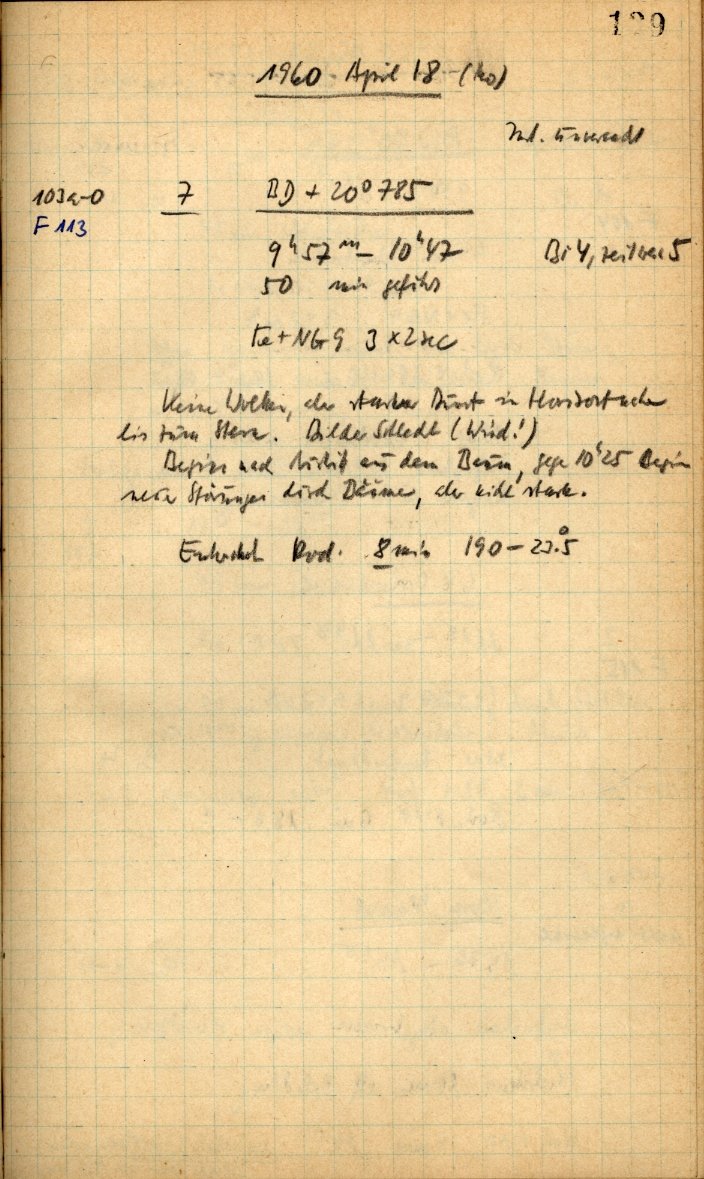 129
1960 April 18 (Mo)
103a-O 7 BD + 20° 785
F 113
9ʰ57ᵐ – 10ʰ47 Bi 4, zeitw. 5
50 min geführt
Fe + NG 9 3 x 2 sec
Keine Wolken, aber starker Dunst in Horizontnähe
bis zum Stern. Bilder schlecht (Wind!)
Beginn nach Austritt aus dem Baum, gege 10ʰ25 Beginn
neuer Störungen durch Bäume, aber nicht stark.
Entwickelt Rod. 8 min 190 – 23.°5